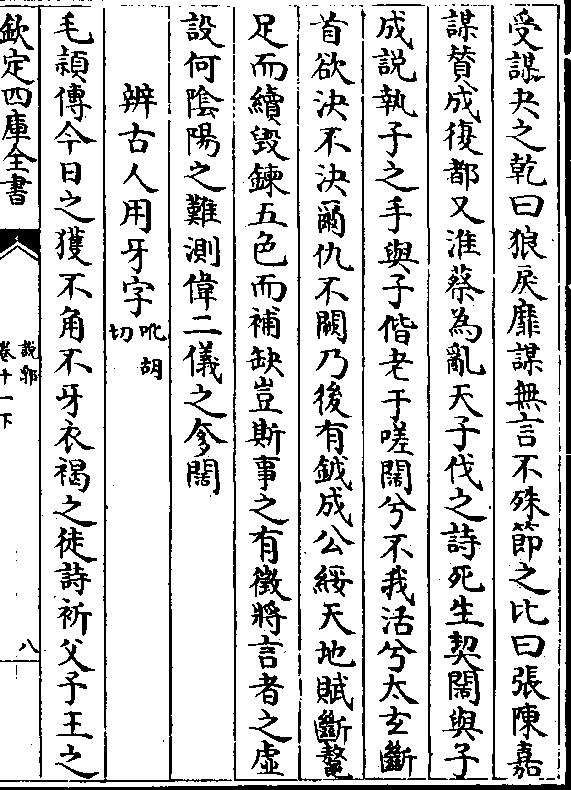 受謀夬之乾曰狼戾靡謀無言不殊節之比曰張陳嘉
謀贊成復都又淮蔡為亂天子伐之詩死生契闊與子
成説執子之手與子偕老于嗟闊兮不我活兮太玄斷
首欲决不决爾仇不闕乃後有鉞成公綏天地賦斷鼇
足而續毀鍊五色而補缺豈斯事之有徵將言者之虚
設何陰陽之難測偉二儀之奓闊
辨古人用牙字吪胡切
毛頴傳今日之獲不角不牙衣褐之徒詩祈父予王之
欽定四庫全書
説郛
卷十一下
八